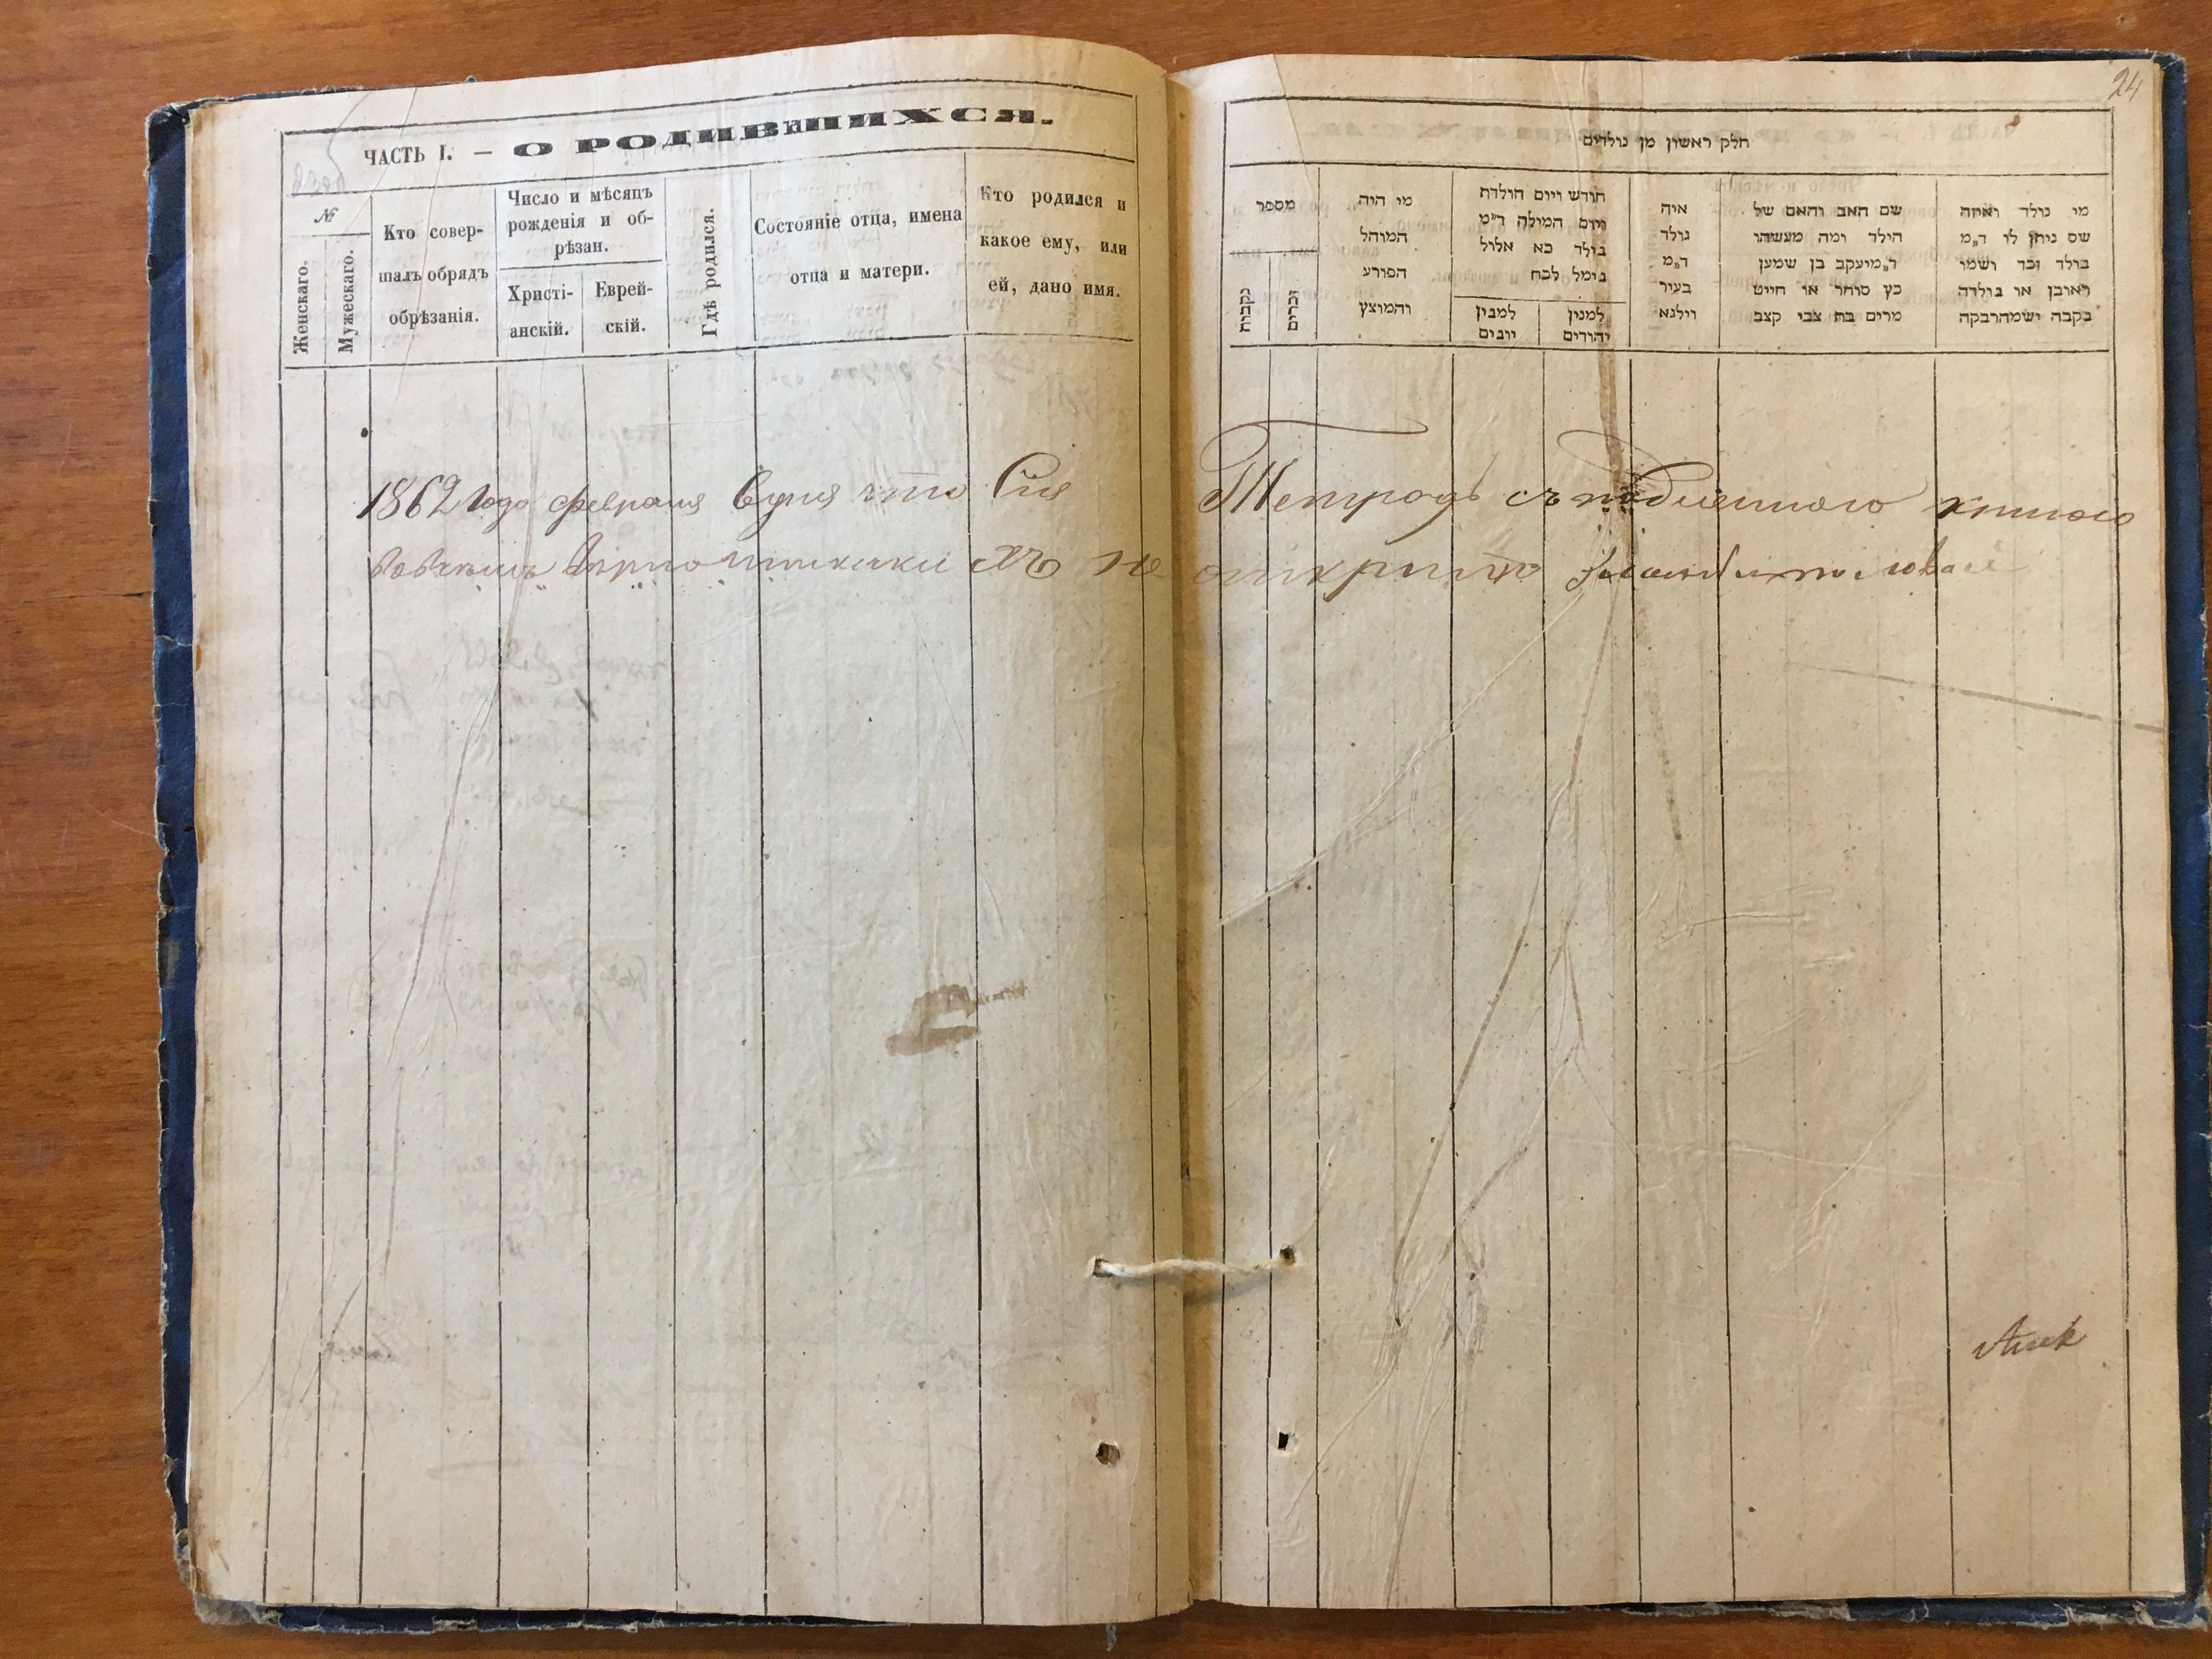 ЧАСТЬ I. — О РОДИВШИХСЯ.
№
Женскаго.
Мужескаго.
Кто совер-
шалъ обрядъ
обрѣзанія.
Число и мѣсяцъ
рожденія и об-
рѣзан.
Христі-
анскій.
Еврей-
скій.
Гдѣ родился.
Состояніе отца, имена
отца и матери.
Кто родился и
какое ему, или
ей, дано имя.
1862 года февраля 6 дня что Сія
не
24
חלק ראשון מן נולדים
מספר
נקבות
זכרים
מי היה
המוהל
הפורע
והמוצץ
חודש ויום הולדת
ויום המילה ד״מ
נולד כא אלול
נימל לכח
למנין
יהודים
למנין
יונים
איה
נולד
ד״מ
בעיר
ווילנא
שם האב והאם של
הילד ומה מעשהו
ד״מ יעקב בן שמעון
כץ סוחר או חייט
מרים בת צבי קצב
מי נולד ואיזה
שם ניתן לו ד״מ
נולד זכר ושמו
ראובן או נולדה
נקבה ושמה רבקה
Тетрадь съ книгою